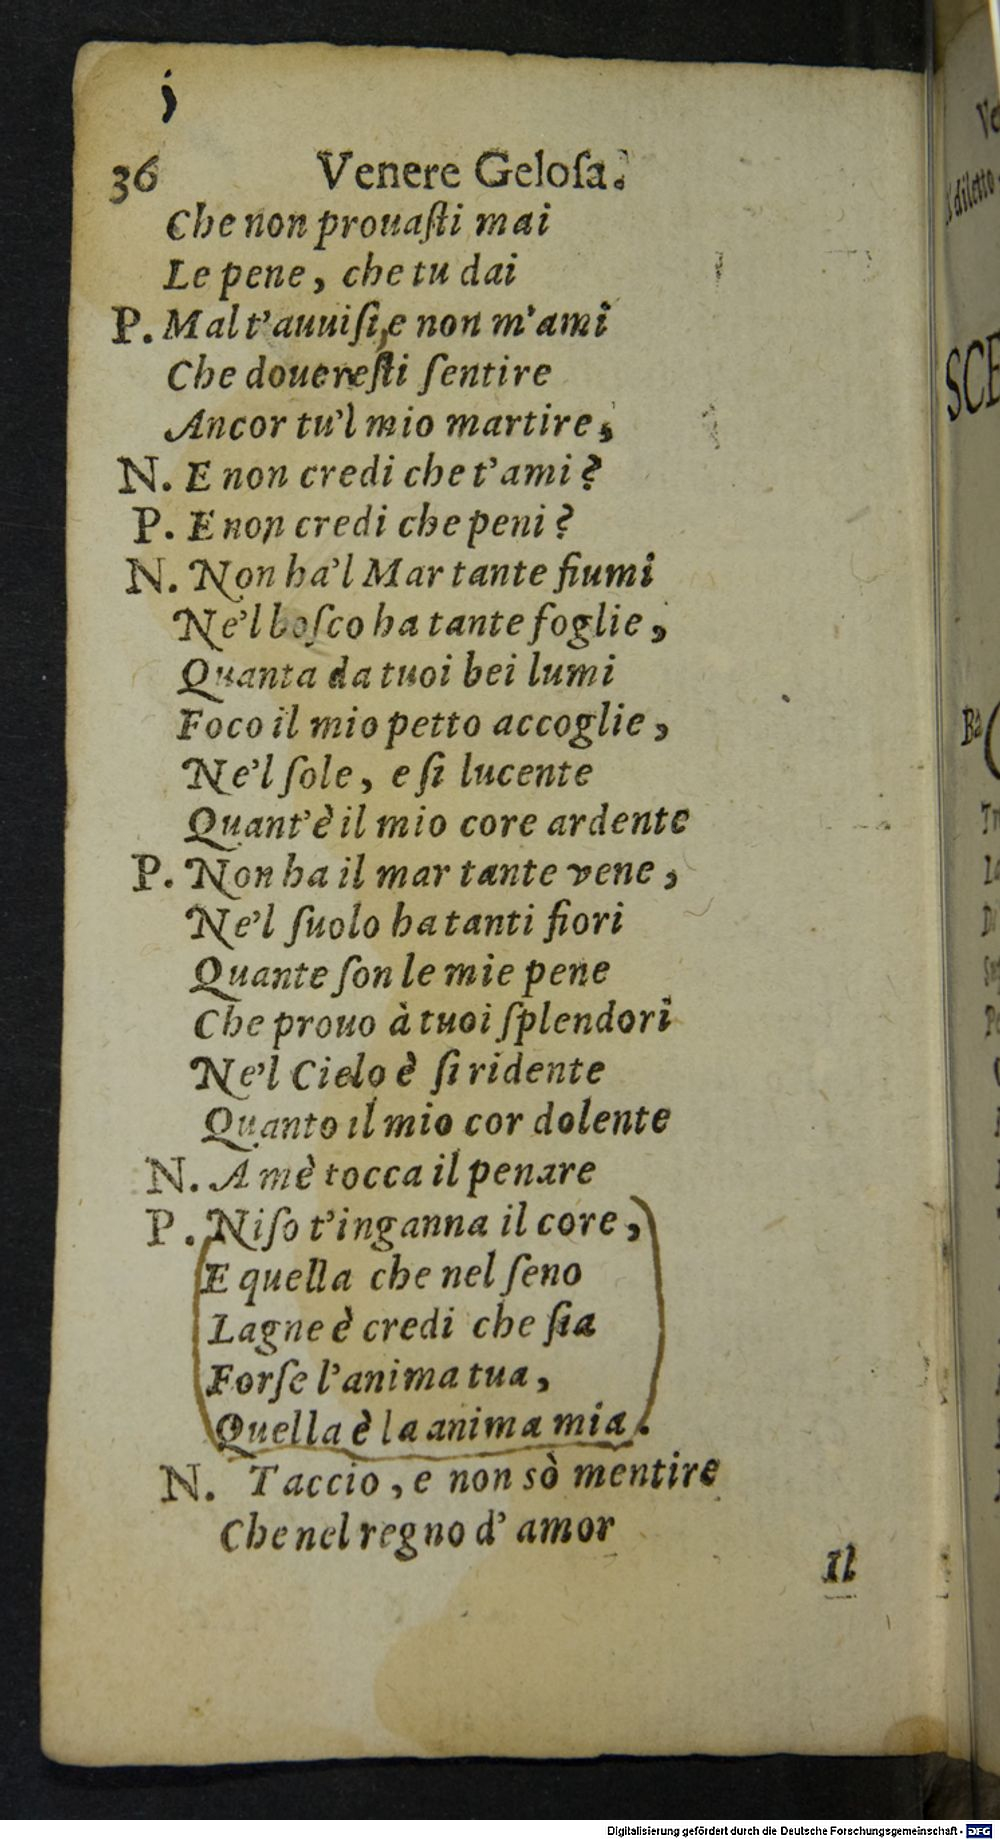 36 Venere Geloſa.
Che non prouaſti mai
Le pene, che tu dai
P. Mal t'auuiſi, e non m'ami
Che doureſti ſentire
Ancor tu'l mio martire,
N. E non credi che t'ami?
P. E non credi che peni?
N. Non ha'l Mar tante fiumi
Ne'l boſco ha tante foglie,
Quanta da tuoi bei lumi
Foco il mio petto accoglie,
Ne'l ſole, e ſi lucente
Quant'è il mio core ardente
P. Non ha il mar tante vene,
Ne'l ſuolo ha tanti fiori
Quante ſon le mie pene
Che prouo à tuoi ſplendori
Ne'l Cielo è ſi ridente
Quanto il mio cor dolente
N. A mè tocca il penare
P. Niſo t'inganna il core,
E quella che nel ſeno
Lagne è credi che ſia
Forſe l'anima tua,
Quella è la anima mia.
N. Taccio, e non sò mentire
Che nel regno d'amor
Il
diletto
SCE
Digitalisierung gefördert durch die Deutsche Forschungsgemeinschaft - DFG